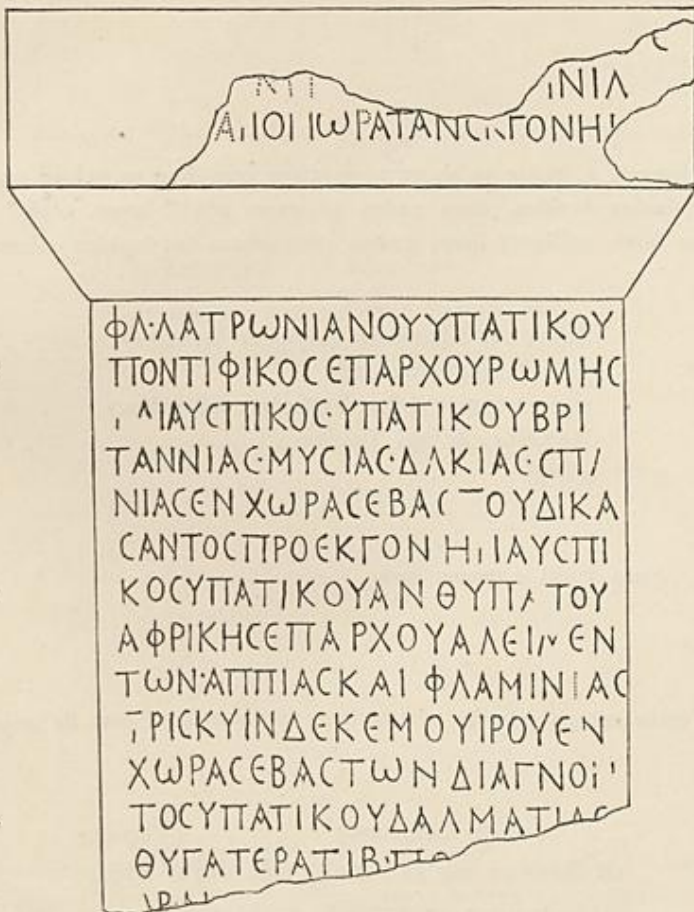 ΙΝΙΛ
ΙΩΡΑΤΑΝ ΓΟΝΗ
ΦΛ·ΛΑΤΡΩΝΙΑΝΟΥΥΠΑΤΙΚΟΥ
ΠΟΝΤΙΦΙΚΟϹΕΠΑΡΧΟΥΡΩΜΗϹ
ΙΑΥϹΠΙΚΟϹ·ΥΠΑΤΙΚΟΥΒΡΙ
ΤΑΝΝΙΑϹ·ΜΥϹΙΑϹ·ΔΛΚΙΑϹ·ϹΠ
ΝΙΑϹΕΝΧΩΡΑϹΕΒΑϹΤΟΥΔΙΚΑ
ϹΑΝΤΟϹΠΡΟΕΚΓΟΝΗ ΙΑΥϹΠΙ
ΚΟϹΥΠΑΤΙΚΟΥΑΝΘΥΠΑΤΟΥ
ΑΦΡΙΚΗϹΕΠΑΡΧΟΥΑΛΕΙΜΕΝ
ΤΩΝ·ΑΠΠΙΑϹΚΑΙΦΛΑΜΙΝΙΑϹ
ΤΡΙϹΚΥΙΝΔΕΚΕΜΟΥΙΡΟΥΕΝ
ΧΩΡΑϹΕΒΑϹΤΩΝΔΙΑΓΝΟΙ
ΤΟϹΥΠΑΤΙΚΟΥΔΑΛΜΑΤΙΑϹ
ΘΥΓΑΤΕΡΑΤΙΒ·ΠΟ